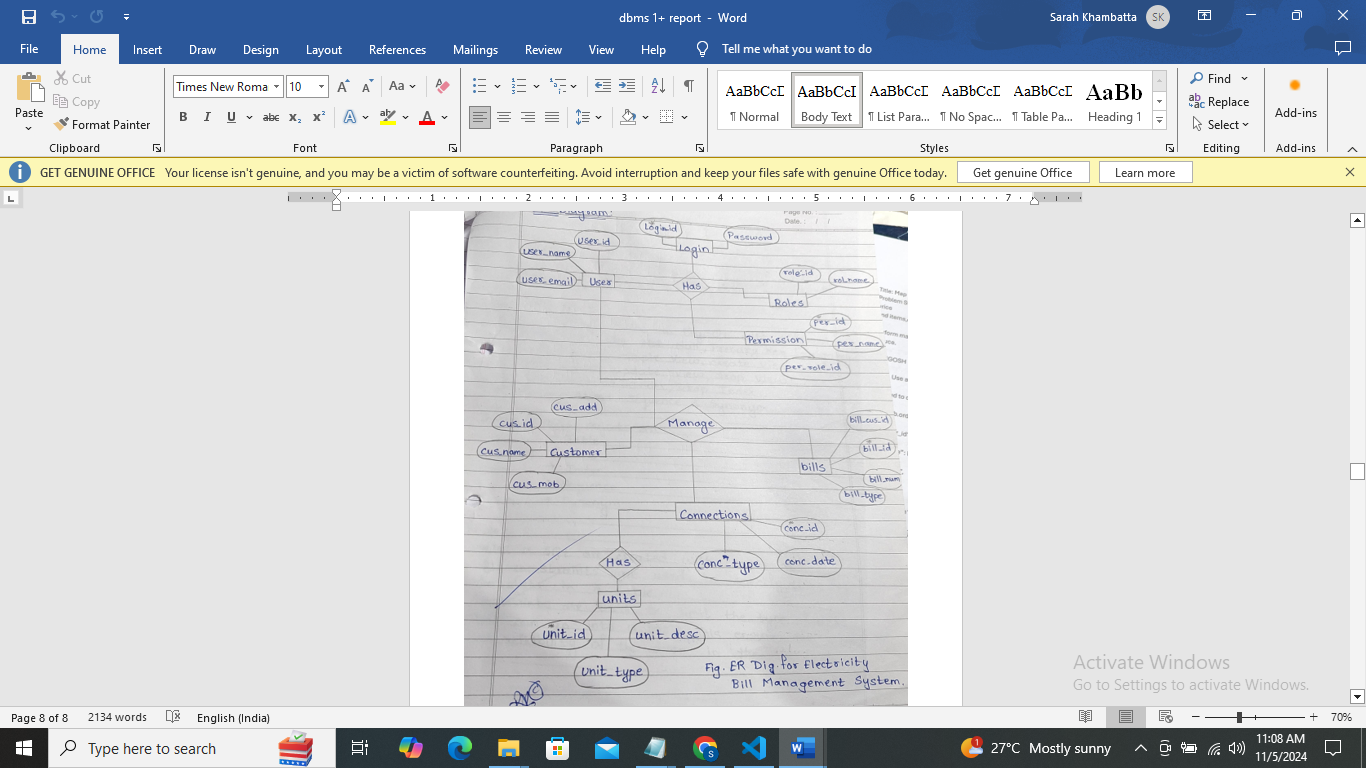 dbms 1+ report - Word
Sarah Khambatta SK
File Home Insert Draw Design Layout References Mailings Review View Help Tell me what you want to do
Paste
Cut
Copy
Format Painter
Clipboard
Times New Roma 10
B I U abc x₂ x²
Font
Paragraph
AaBbCcI AaBbCcI AaBbCcI AaBbCcI AaBbCcI AaBb
¶ Normal Body Text ¶ List Para... ¶ No Spac... ¶ Table Pa... Heading 1
Styles
Find
Replace
Select
Editing
Add-ins
Add-ins
GET GENUINE OFFICE Your license isn't genuine, and you may be a victim of software counterfeiting. Avoid interruption and keep your files safe with genuine Office today. Get genuine Office Learn more
1 2 3 4 5 6 7
Page No:
Date: / /
Diagram:
Login_id
Password
Login
user_id
user_name
user_email
User
Has
role_id
rol_name
Roles
per_id
Permission
per_name
per_role_id
cus_add
cus_id
Manage
bill_cus_id
cus_name
Customer
bill_id
bills
cus_mob
bill_num
bill_type
Connections
conc_id
Has
conc_type
conc_date
units
unit_id
unit_desc
unit_type
Fig. ER Dig. for Electricity
Bill Management System.
Activate Windows
Go to Settings to activate Windows.
Page 8 of 8 2134 words English (India) 70%
Type here to search
27°C Mostly sunny
11:08 AM
11/5/2024